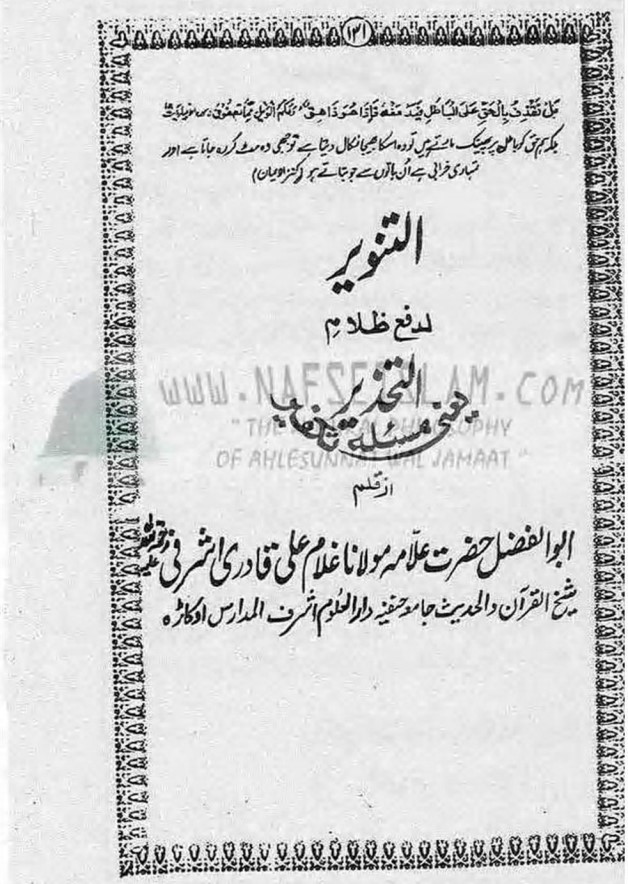 (۱۳۱)
بَلْ نَقْذِفُ بِالْحَقِّ عَلَى الْبَاطِلِ فَيَدْمَغُهُ فَاِذَا هُوَ زَاهِقٌ وَلَكُمُ الْوَيْلُ مِمَّا تَصِفُوْنَ
بلکہ ہم حق کو باطل پر پھینک مارتے ہیں تو وہ اسکا بھیجا نکال دیتا ہے تو جبھی وہ مٹ کر رہ جاتا ہے اور
تمہاری خرابی ہے اُن باتوں سے جو بناتے ہو (کنزالایمان)
التنویر
لدفع ظلام
التحذیر
یعنی مسئلہ تکفیر
www.NAFSEISLAM.COM
"THE PHILOSOPHY
OF AHLESUNNAT WAL JAMAAT"
از قلم
ابوالفضل حضرت علّامہ مولانا غلام علی قادری اشرفی
شیخ القرآن والحدیث جامعہ حنفیہ دارالعلوم اشرف المدارس اوکاڑہ